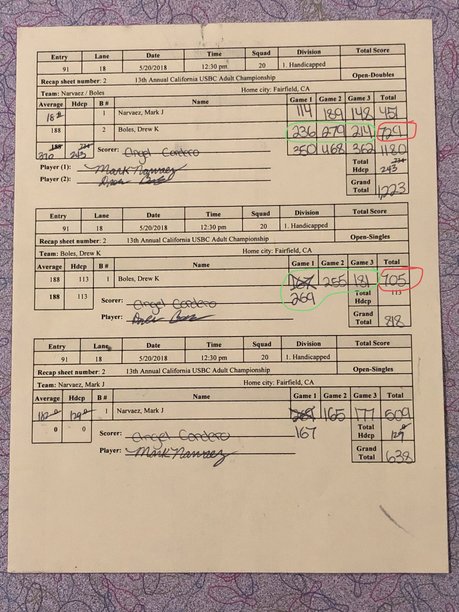 Entry Lane Date Time Squad Division Total Score
91 18 5/20/2018 12:30 pm 20 1. Handicapped
Recap sheet number: 2 13th Annual California USBC Adult Championship Open-Doubles
Team: Narvaez / Boles Home city: Fairfield, CA
Average Hdcp B # Name Game 1 Game 2 Game 3 Total
1 Narvaez, Mark J 114 189 148 451
188 2 Boles, Drew K 236 279 214 729
370 243 Scorer: Angel Cordero 350 468 362 1180
Player (1): Mark Narvaez Total Hdcp 243
Player (2): Drew Boles
Grand Total 1223
Entry Lane Date Time Squad Division Total Score
91 18 5/20/2018 12:30 pm 20 1. Handicapped
Recap sheet number: 2 13th Annual California USBC Adult Championship Open-Singles
Team: Boles, Drew K Home city: Fairfield, CA
Average Hdcp B # Name Game 1 Game 2 Game 3 Total
188 113 1 Boles, Drew K 255 181 705
188 113 Scorer: Angel Cordero 269 Total Hdcp 113
Player: Drew Boles Grand Total 818
Entry Lane Date Time Squad Division Total Score
91 18 5/20/2018 12:30 pm 20 1. Handicapped
Recap sheet number: 2 13th Annual California USBC Adult Championship Open-Singles
Team: Narvaez, Mark J Home city: Fairfield, CA
Average Hdcp B # Name Game 1 Game 2 Game 3 Total
1 Narvaez, Mark J 165 177 509
0 0 Scorer: Angel Cordero 167 Total Hdcp 129
Player: Mark Narvaez Grand Total 638